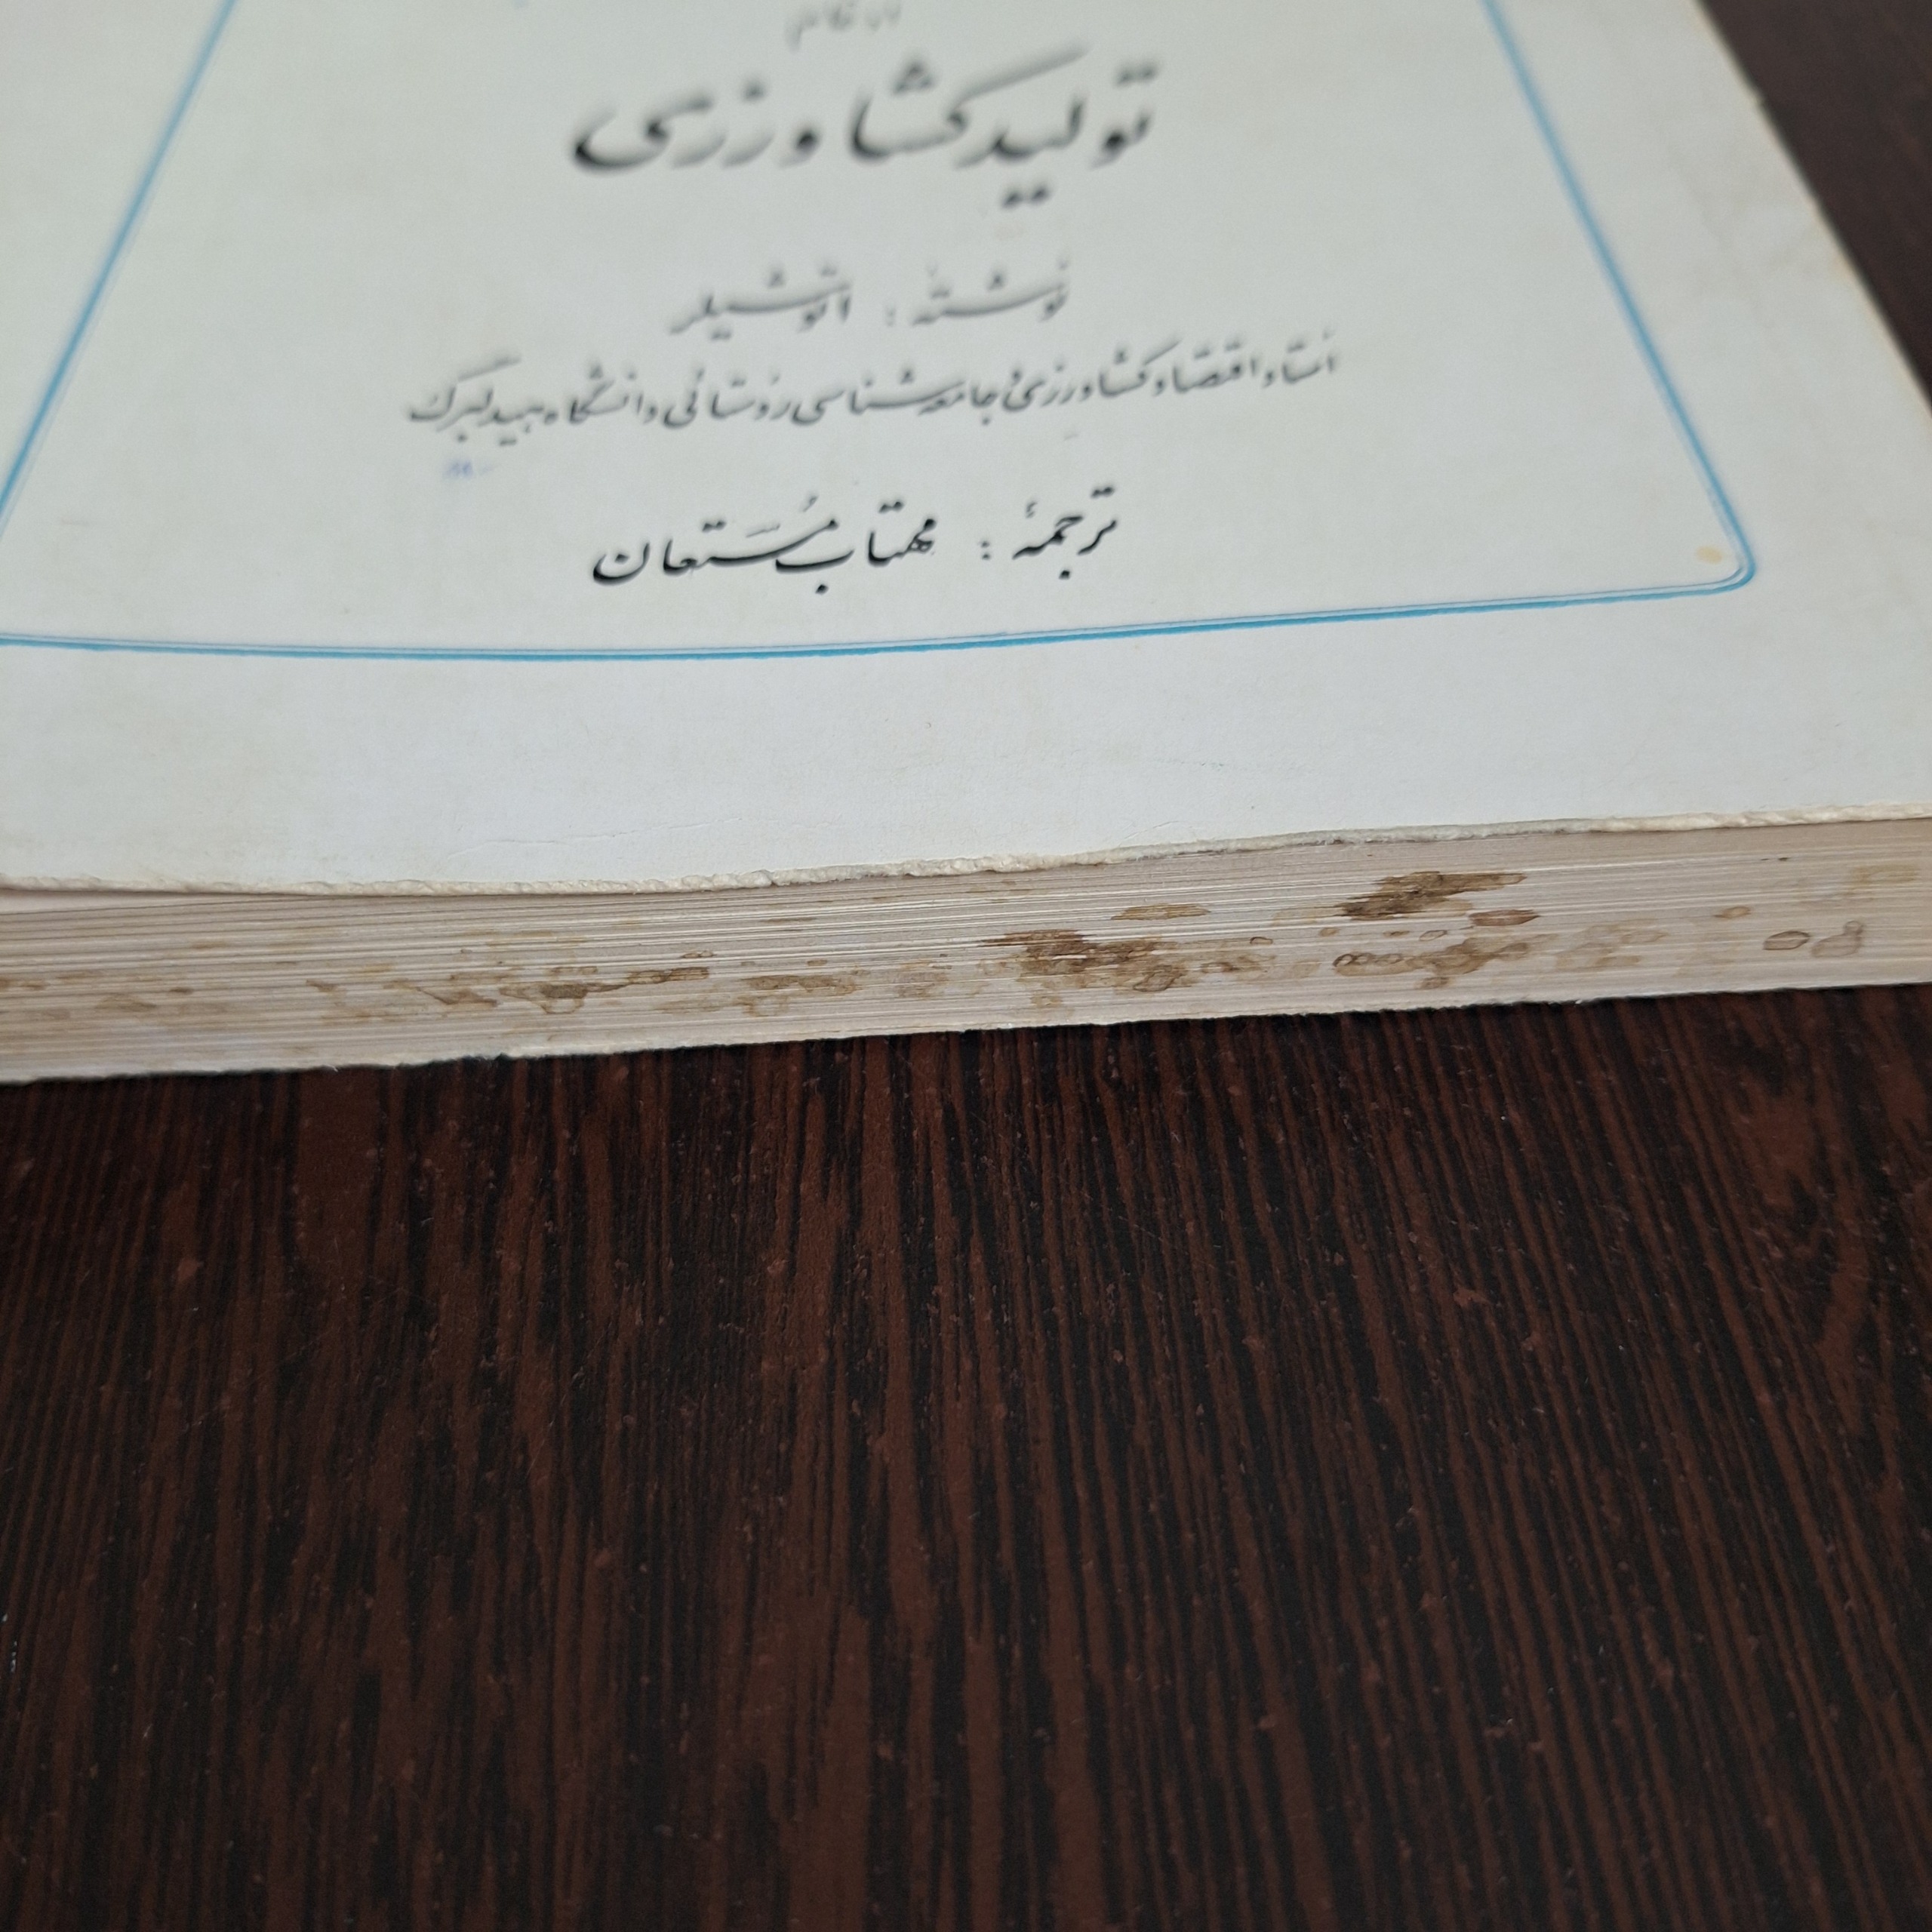 تولید کشاورزی
نوشته : اتوشیلر
استاد اقتصاد کشاورزی و جامعه شناسی روستائی دانشگاه هیدلبرگ
ترجمهٔ : مهتاب مُستَعان